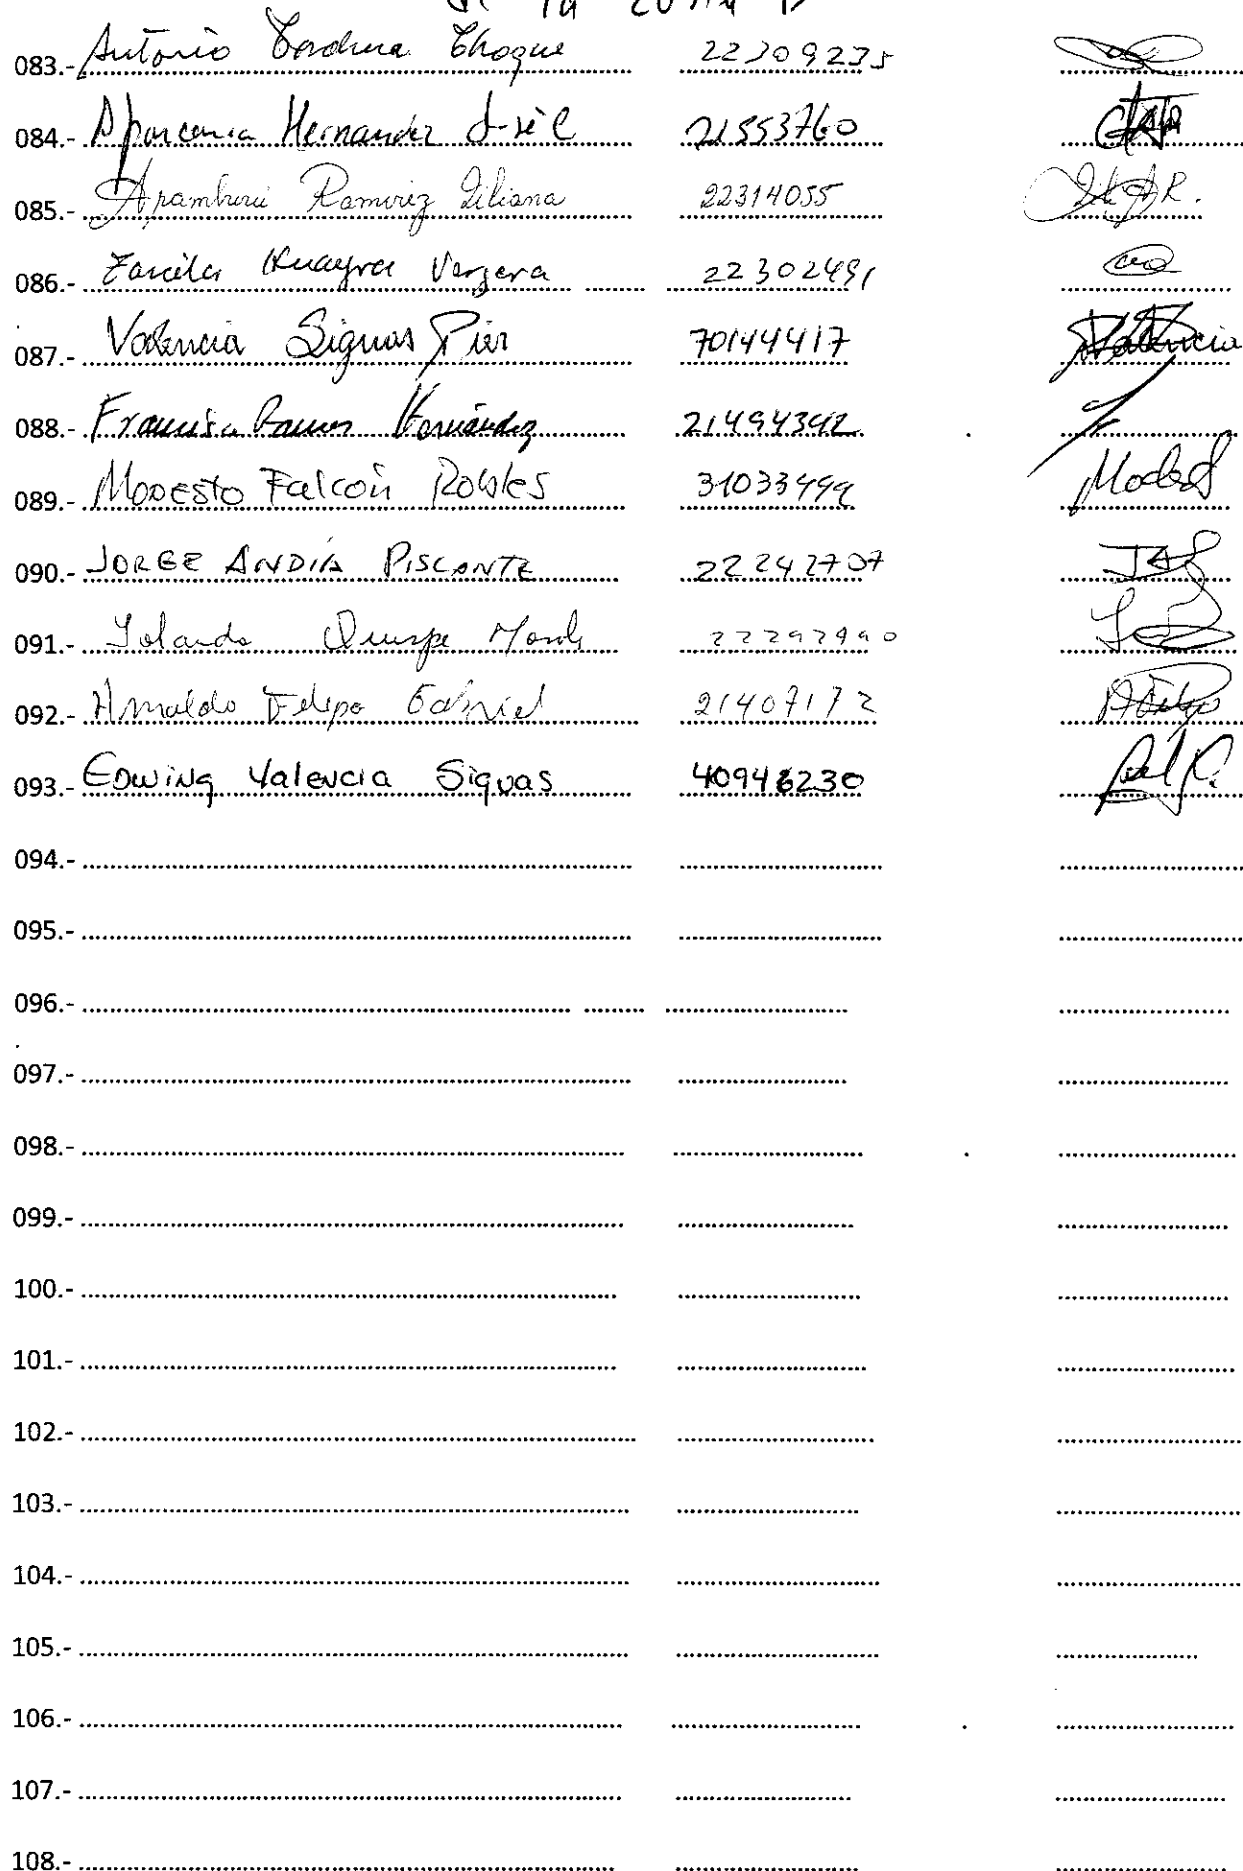 la
083.- Antonio Choque 22309235
084.- Aparcana Hernandez José C 21553760
085.- Aramburú Ramirez Liliana 22314055 L.A.R.
086.- Huayra Vergara 22302491
087.- Valencia Siguas Pier 70144417 Valencia
088.- Francisca Ramos Hernández 21494342
089.- Modesto Falcón Robles 31033499
090.- JORGE ANDIA PISCONTE 22242707
091.- Yolanda Quispe 22292990
092.- Arnaldo Felipa Gabriel 21407172
093.- Edwing Valencia Siguas 40946230
094.-
095.-
096.-
097.-
098.-
099.-
100.-
101.-
102.-
103.-
104.-
105.-
106.-
107.-
108.-